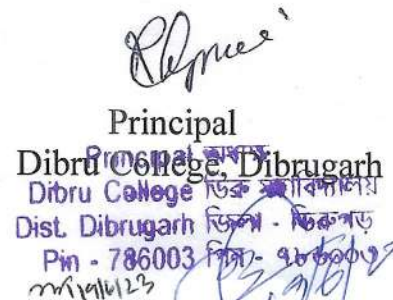 Principal
Dibru College, Dibrugarh
Principal অধ্যক্ষ
Dibru College ডিব্রু মহাবিদ্যালয়
Dist. Dibrugarh জিলা - ডিব্ৰুগড়
Pin - 786003 পিন- ৭৮৬০০৩